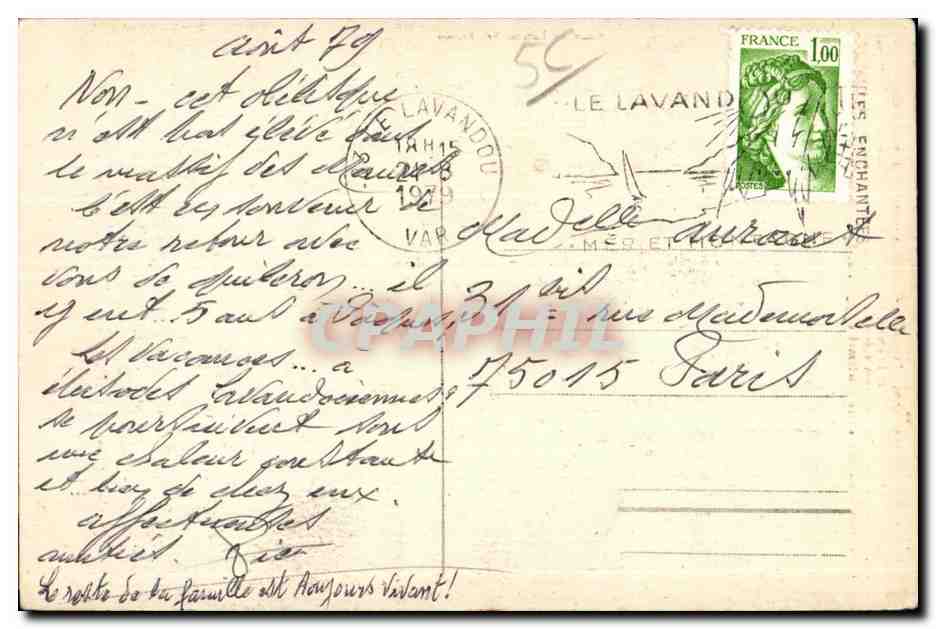 août 79
Non - cet obélisque
n'est pas élevé dans
le massif des Maures
C'est en souvenir de
notre retour avec
vous de Quiberon... il
y eut 5 ans à Pâques
Les vacances... a
épisodes Lavandouiennes
se poursuivent sous
une chaleur constante
et
affectueuses
amitiés.
Le reste de la famille est toujours vivant!
5C/
LE LAVANDOU
18H15
24-8
1979
VAR
LE LAVAND
MER ET
ENCHANTEES
FRANCE 1,00
POSTES
Madelle
31 bis rue Mademoiselle
75015 Paris
CPAPHIL